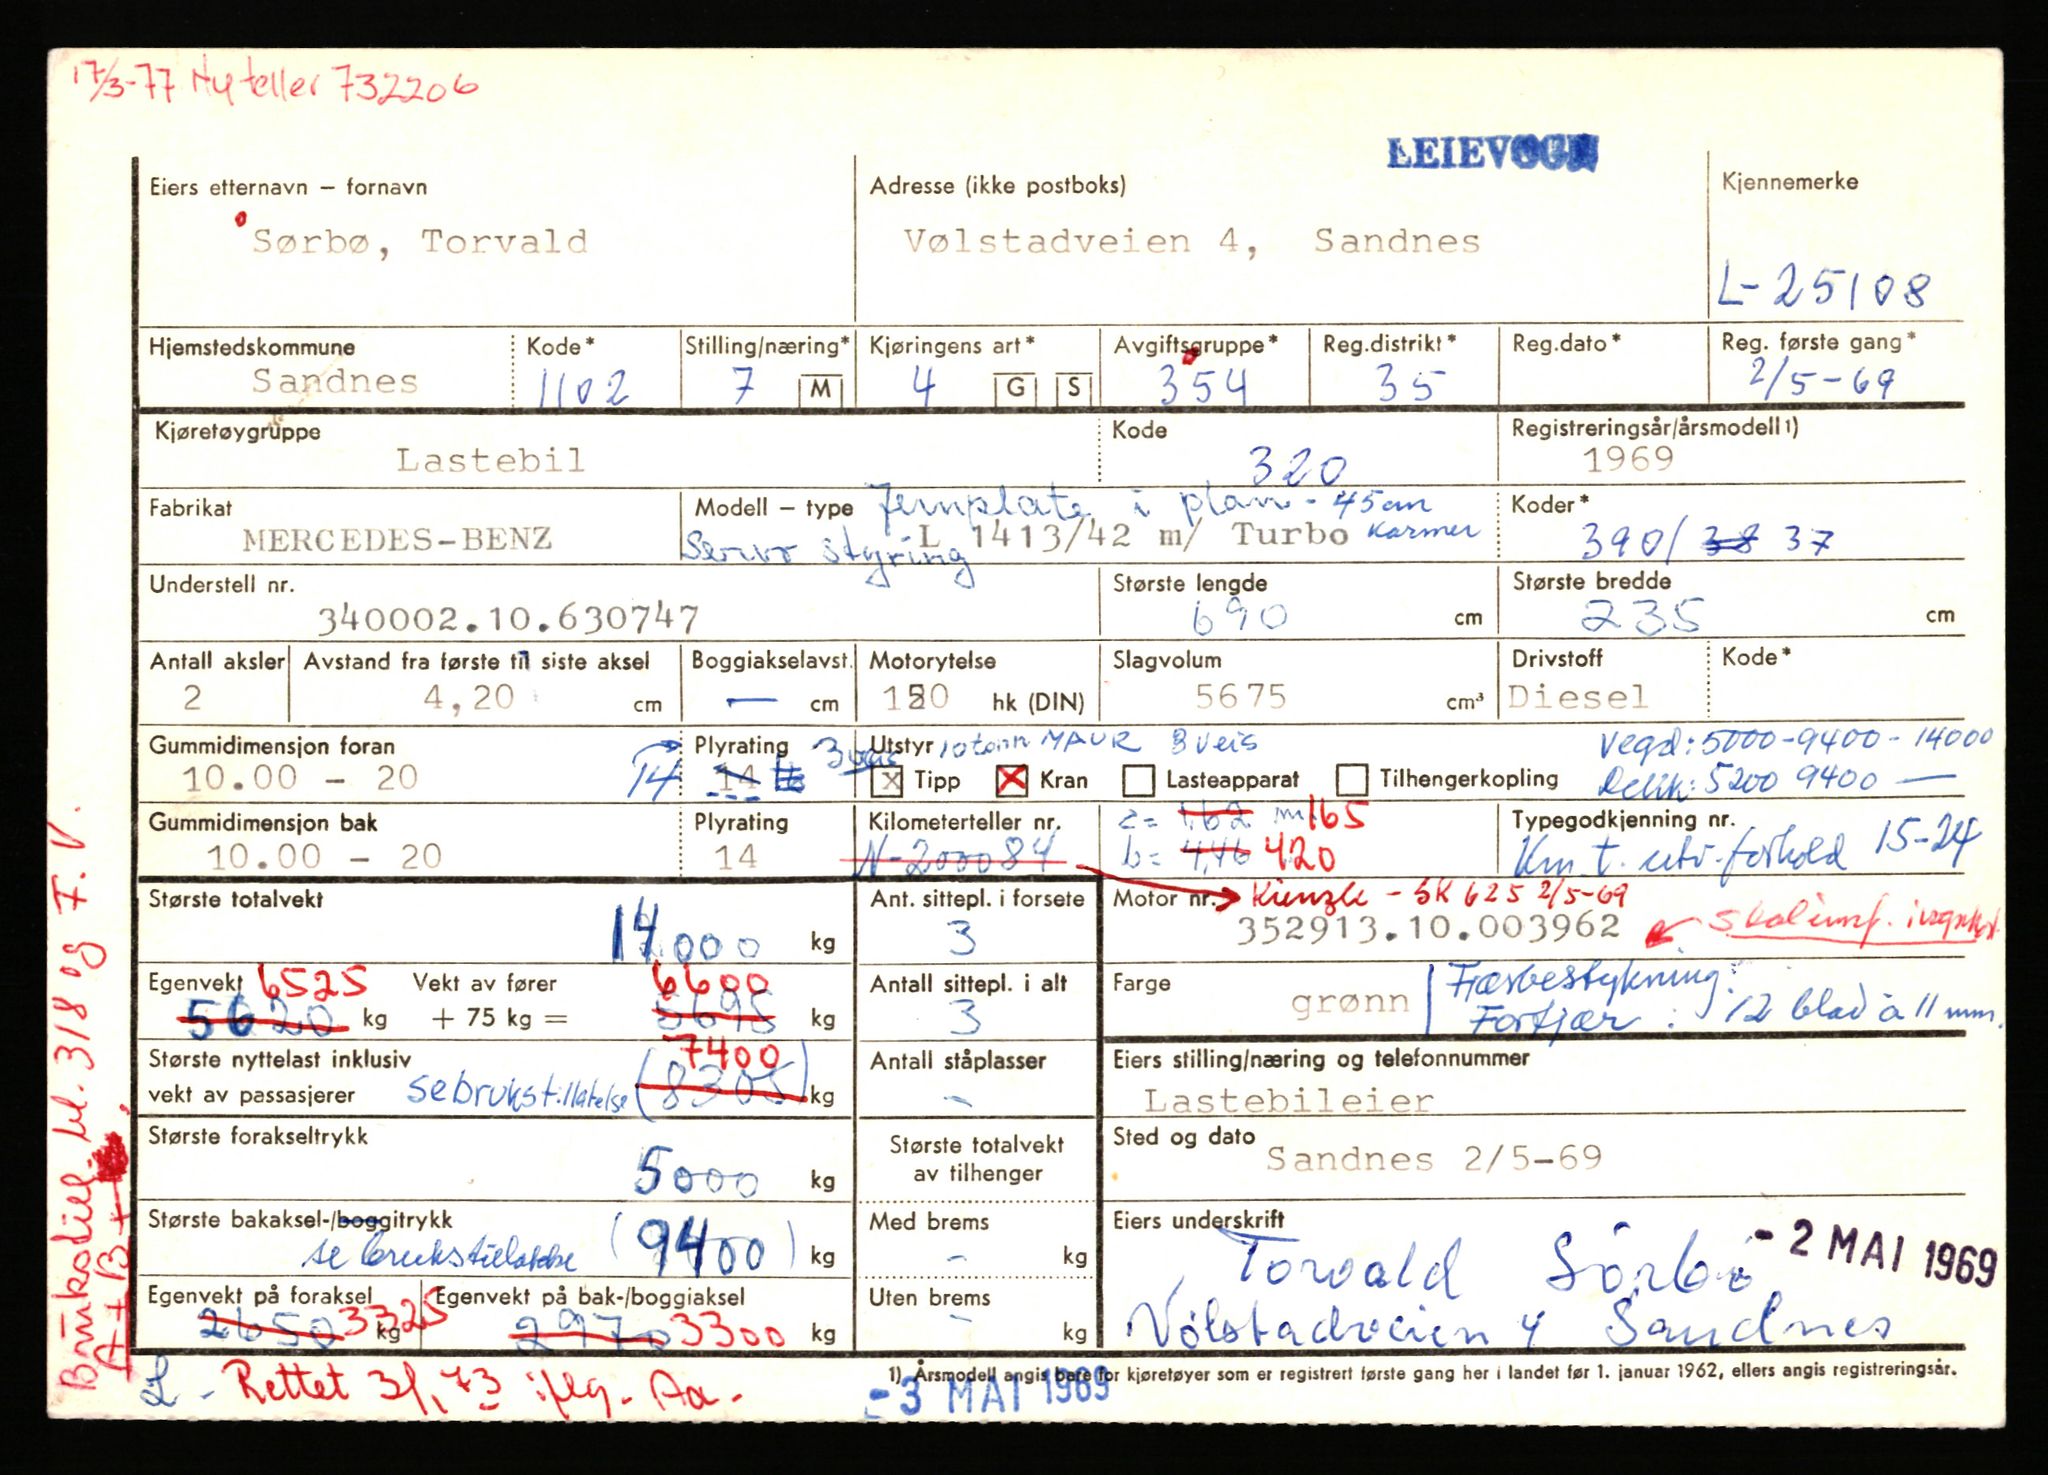 17/3-77 Ny teller 732206
LEIEVOGN
Eiers etternavn – fornavn
Sørbø, Torvald
Adresse (ikke postboks)
Vølstadveien 4, Sandnes
Kjennemerke
L-25108
Hjemstedskommune
Sandnes
Kode*
1102
Stilling/næring*
7 M
Kjøringens art*
4 G S
Avgiftsgruppe*
354
Reg.distrikt*
35
Reg.dato*
Reg. første gang*
2/5-69
Kjøretøygruppe
Lastebil
Kode
320
Registreringsår/årsmodell 1)
1969
Fabrikat
MERCEDES-BENZ
Modell – type
Jernplate i plan - 45 cm
L 1413/42 m/ Turbo karmer
Servo styring
Koder*
390/ 38 37
Understell nr.
340002.10.630747
Største lengde
690 cm
Største bredde
235 cm
Antall aksler
2
Avstand fra første til siste aksel
4,20 cm
Boggiakselavst.
— cm
Motorytelse
150 hk (DIN)
Slagvolum
5675 cm³
Drivstoff
Diesel
Kode*
Gummidimensjon foran
10.00 – 20
Plyrating
14 14 3 veis
Utstyr 10 tonn MAUR 3 veis
x Tipp X Kran Lasteapparat Tilhengerkopling
Vegd: 5000-9400-14000
5200 9400 —
Gummidimensjon bak
10.00 – 20
Plyrating
14
Kilometerteller nr.
N-200084
a = 1,62 m 165
b = 4,46 420
Typegodkjenning nr.
Km.t. utv. forhold 15-24
Største totalvekt
14000 kg
Ant. sittepl. i forsete
3
Motor nr. Kienzle - SK 625 2/5-69
352913.10.003962
Egenvekt 6525
5620 kg
Vekt av fører 6600
+ 75 kg = 5695 kg
Antall sittepl. i alt
3
Farge
grønn
Færbestykning:
Forfjær: 12 blad a 11 mm.
Største nyttelast inklusiv 7400
vekt av passasjerer se brukstillatelse (8305) kg
Antall ståplasser
-
Eiers stilling/næring og telefonnummer
Lastebileier
Største forakseltrykk
5000 kg
Største totalvekt
av tilhenger
Sted og dato
Sandnes 2/5-69
Største bakaksel-/boggitrykk
se brukstillatelse (9400) kg
Med brems
- kg
Eiers underskrift
Torvald Sörbö
- 2 MAI 1969
Vølstadveien 4 Sandnes
Egenvekt på foraksel
2650 3325 kg
Egenvekt på bak-/boggiaksel
2970 3300 kg
Uten brems
- kg
1) Årsmodell angis bare for kjøretøyer som er registrert første gang her i landet før 1. januar 1962, ellers angis registreringsår.
L - Rettet 3/1 73 iflg. Aa -
- 3 MAI 1969
Brukstill. bl. 318 og F.V.
A + B +